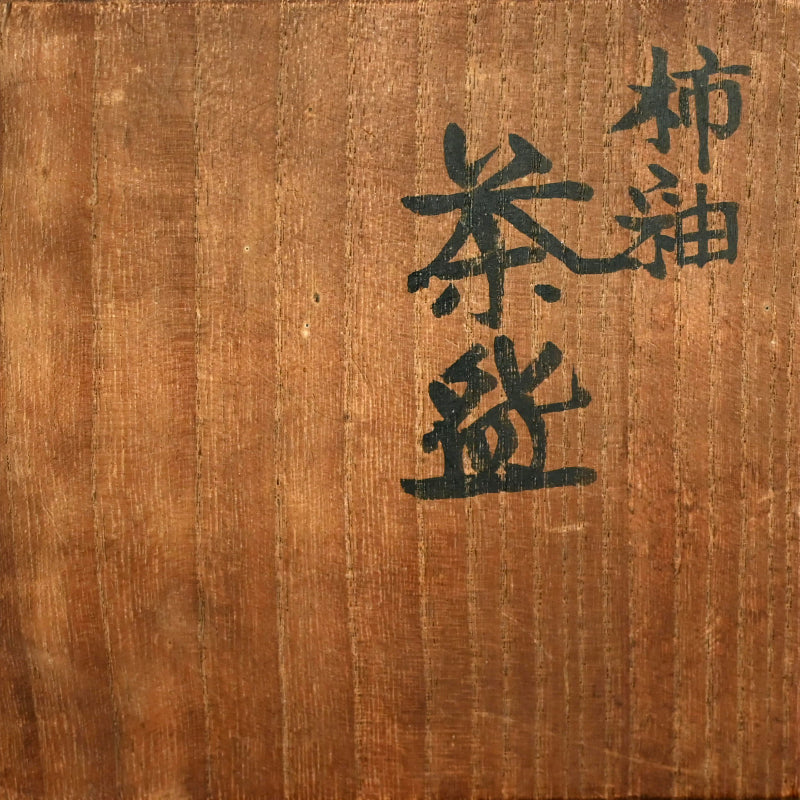 柿釉
茶盌